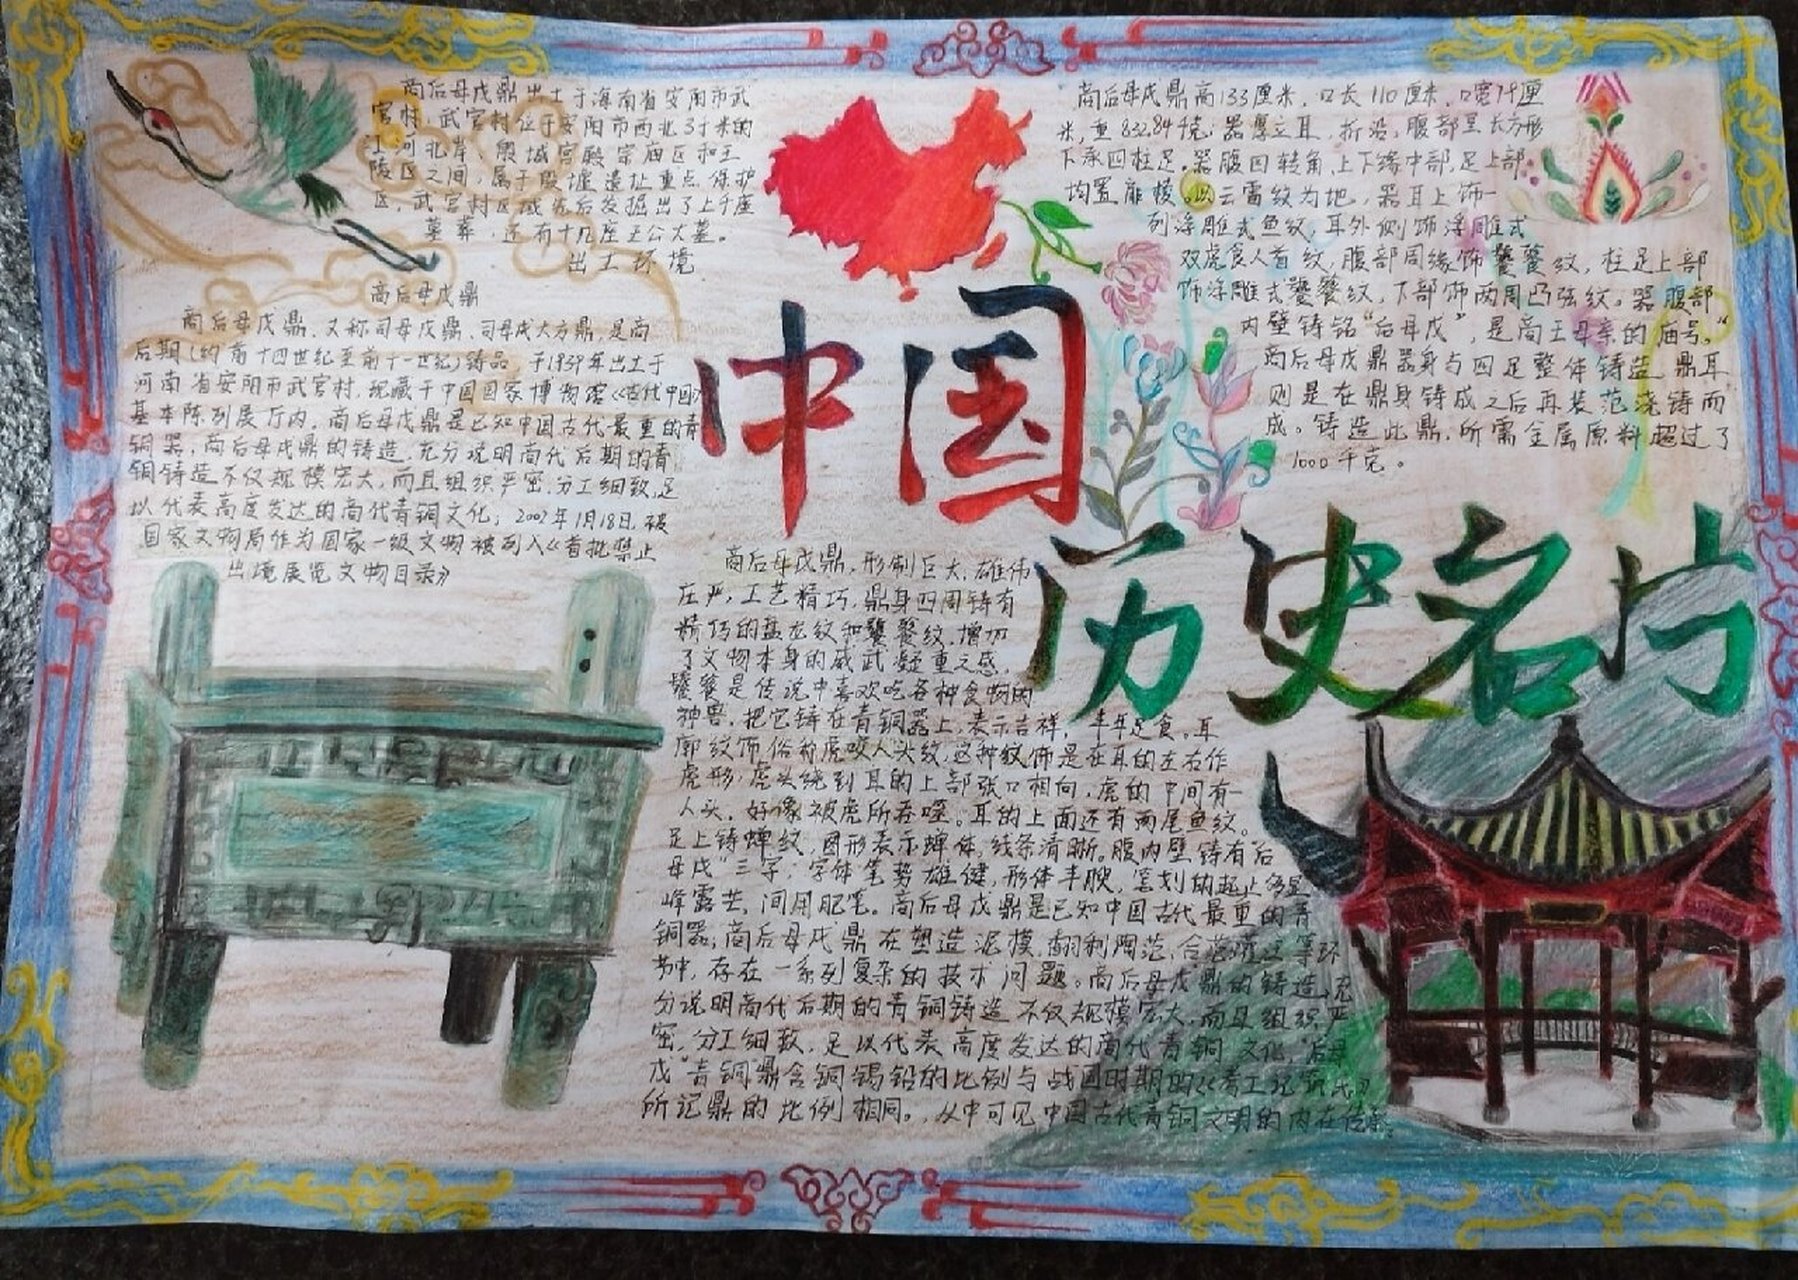 商后母戊鼎出土于海南省安阳市武
官村,武官村位于安阳市西北3千米的
江河北岸、殷城宫殿宗庙区和王
陵区之间,属于殷墟遗址重点保护
区,武官村区域先后发掘出了上千座
墓葬,还有十几座王公大墓。
出土环境
商后母戊鼎
商后母戊鼎,又称司母戊鼎、司母戊大方鼎,是商
后期(约前十四世纪至前十一世纪)铸品,于1939年出土于
河南省安阳市武官村,现藏于中国国家博物馆《古代中国》
基本陈列展厅内。商后母戊鼎是已知中国古代最重的青
铜器,商后母戊鼎的铸造,充分说明商代后期的青
铜铸造不仅规模宏大,而且组织严密,分工细致,足
以代表高度发达的商代青铜文化;2002年1月18日,被
国家文物局作为国家一级文物被列入《首批禁止
出境展览文物目录》
中国
历史名片
商后母戊鼎高133厘米,口长110厘米,口宽79厘
米,重832.84千克;器厚立耳,折沿,腹部呈长方形
下承四柱足。器腹四转角,上下缘中部,足上部
均置扉棱。以云雷纹为地,器耳上饰一
列浮雕式鱼纹,耳外侧饰浮雕式
双虎食人首纹,腹部周缘饰饕餮纹,柱足上部
饰浮雕式饕餮纹,下部饰两周凸弦纹。器腹部
内壁铸铭“后母戊”,是商王母亲的庙号。“
商后母戊鼎器身与四足整体铸造,鼎耳
则是在鼎身铸成之后再装范浇铸而
成。铸造此鼎,所需金属原料超过了
1000千克。
商后母戊鼎,形制巨大,雄伟
庄严,工艺精巧,鼎身四周铸有
精巧的盘龙纹和饕餮纹,增加
了文物本身的威武凝重之感。
饕餮是传说中喜欢吃各种食物的
神兽,把它铸在青铜器上,表示吉祥,丰年足食。耳
廓纹饰俗称虎咬人头纹,这种纹饰是在耳的左右作
虎形,虎头绕到耳的上部张口相向,虎的中间有一
人头,好像被虎所吞噬。耳的上面还有两尾鱼纹。
足上铸蝉纹,图形表示蝉体,线条清晰。腹内壁铸有“后
母戊”三字,字体笔势雄健,形体丰腴,笔划的起止多显
峰露芒,间用肥笔。商后母戊鼎是已知中国古代最重的青
铜器,商后母戊鼎在塑造泥模,翻制陶范,合范灌注等环
节中,存在一系列复杂的技术问题。商后母戊鼎的铸造,充
分说明商代后期的青铜铸造不仅规模宏大,而且组织严
密,分工细致,足以代表高度发达的商代青铜文化,“后母
戊”青铜鼎含铜锡铅的比例与战国时期的《考工记筑氏》
所记鼎的比例相同。从中可见中国古代青铜文明的内在传承。